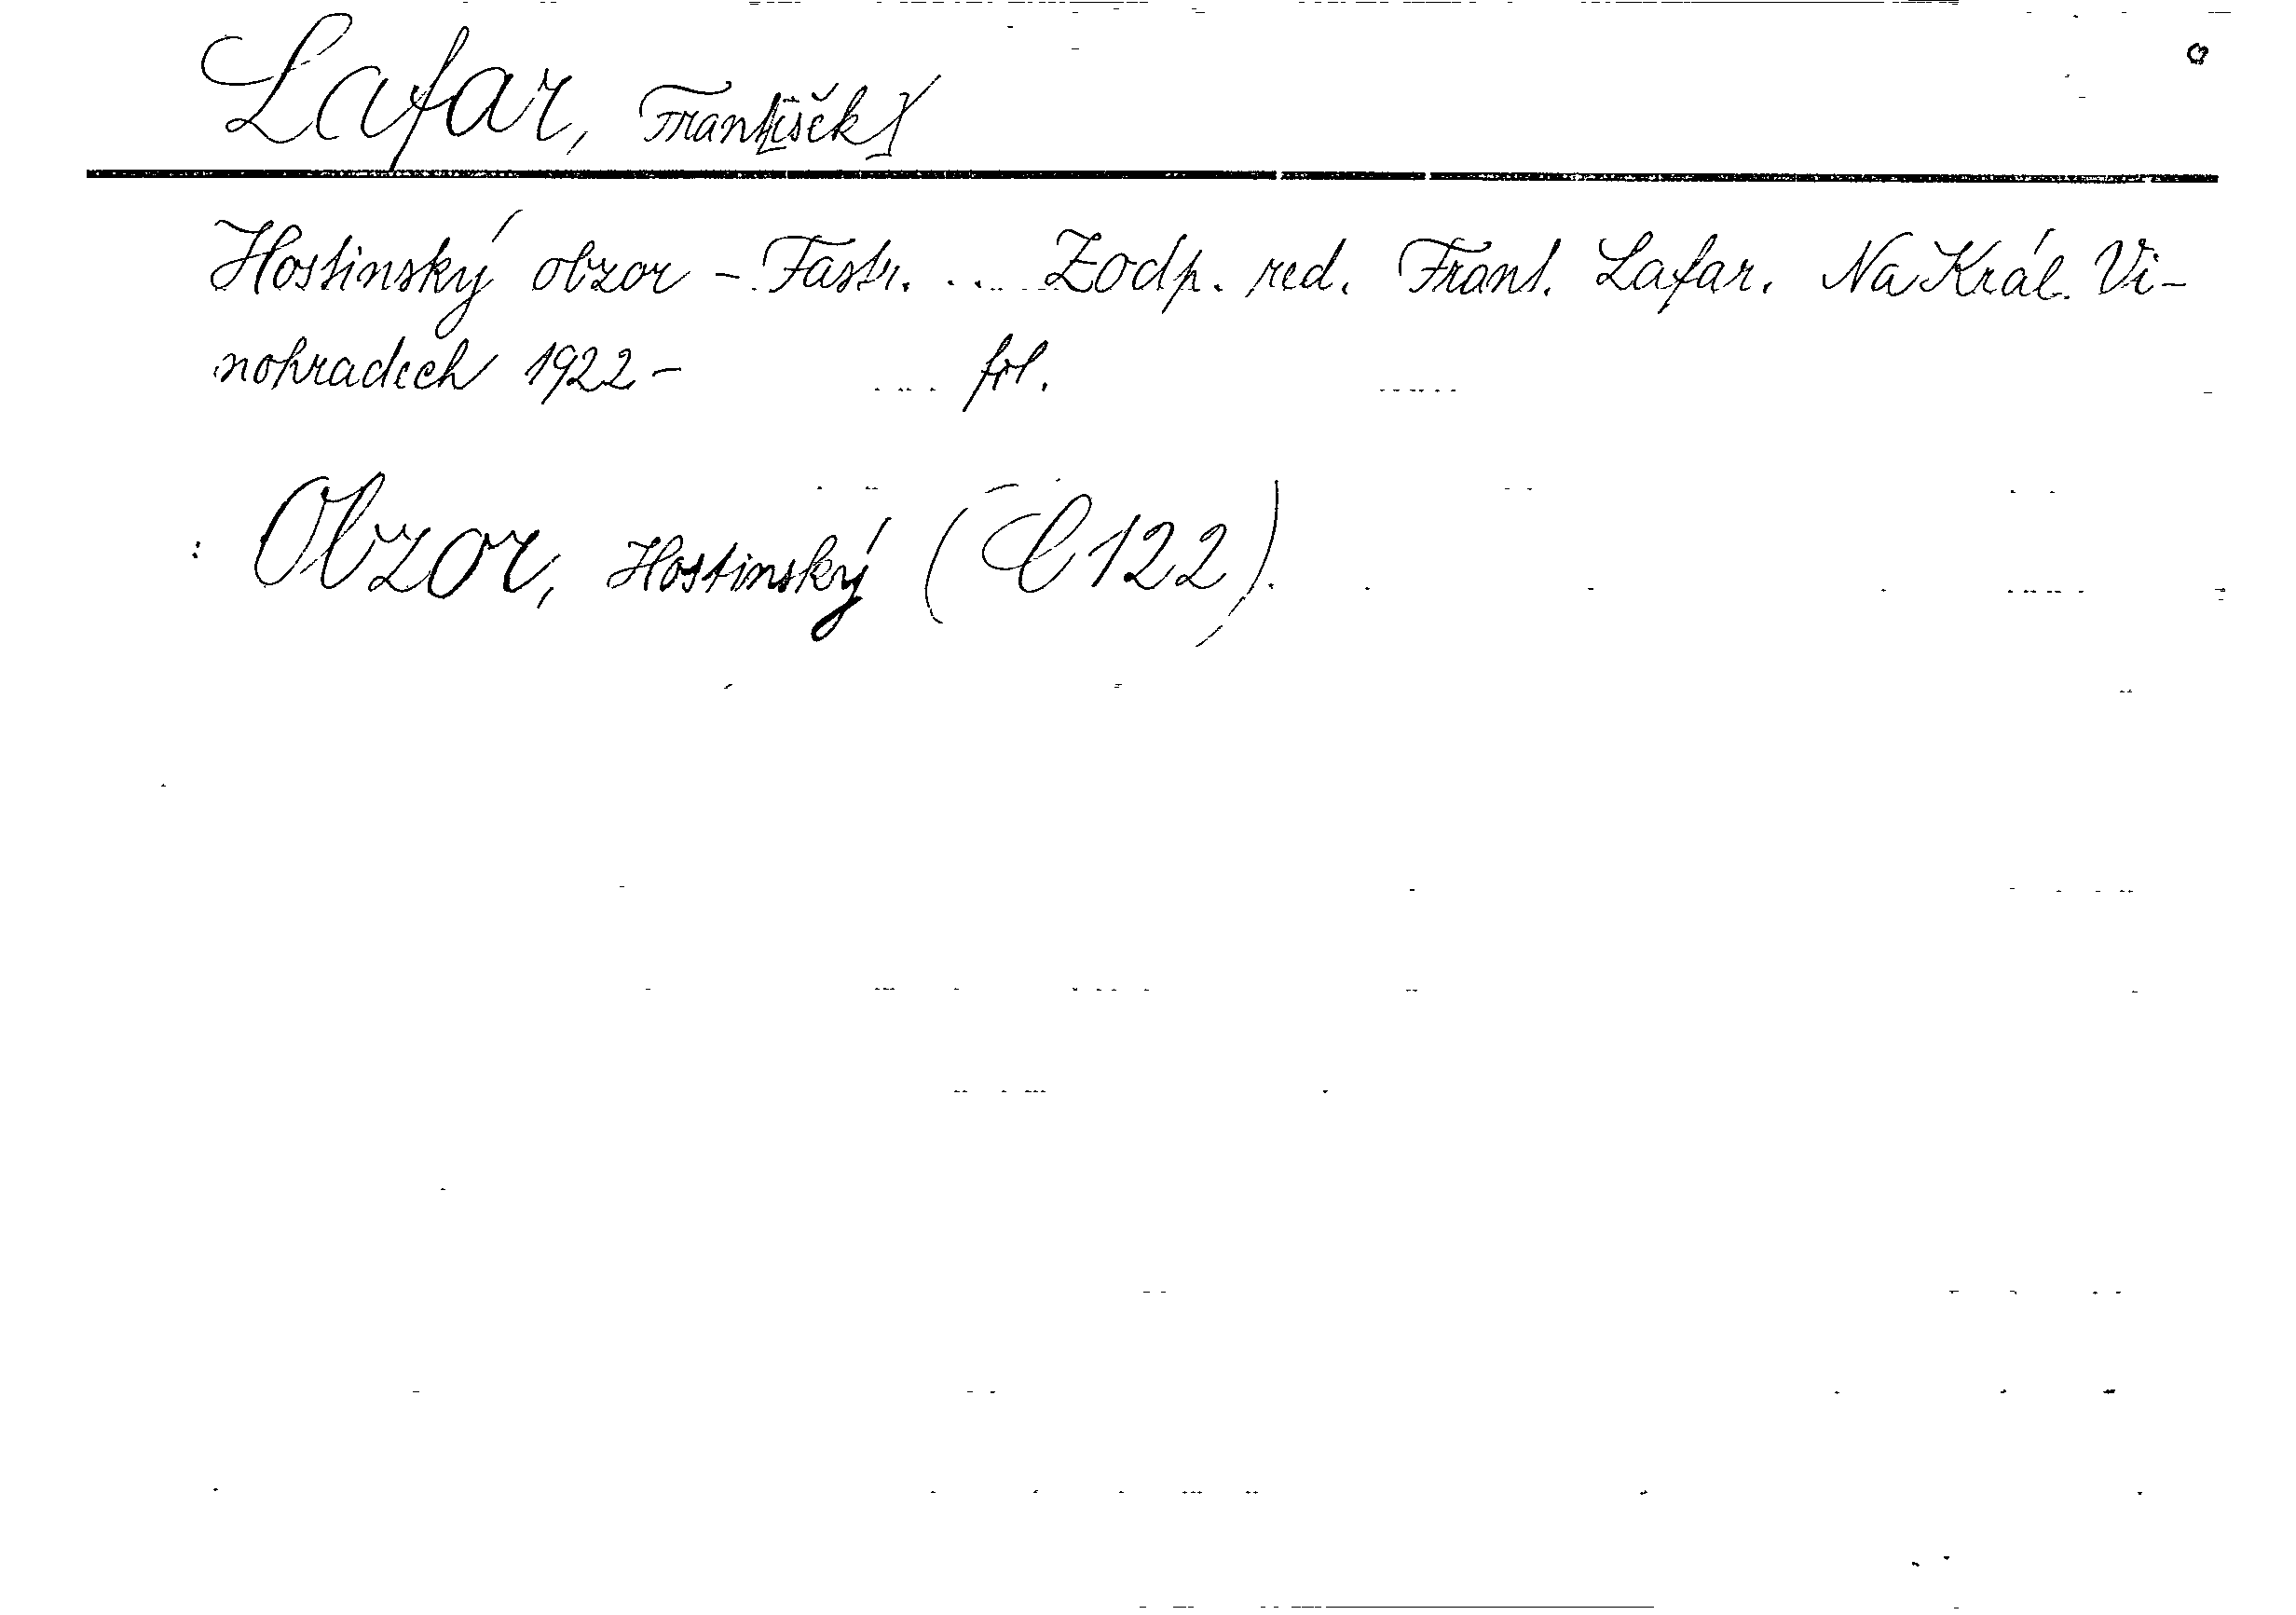 Lafar, Frant[išek]
Hostinský obzor - Fastr. ... Zodp. red. Frant. Lafar. Na Král. Vi-
nohradech 1922- fol.
: Obzor, Hostinský (C 122).